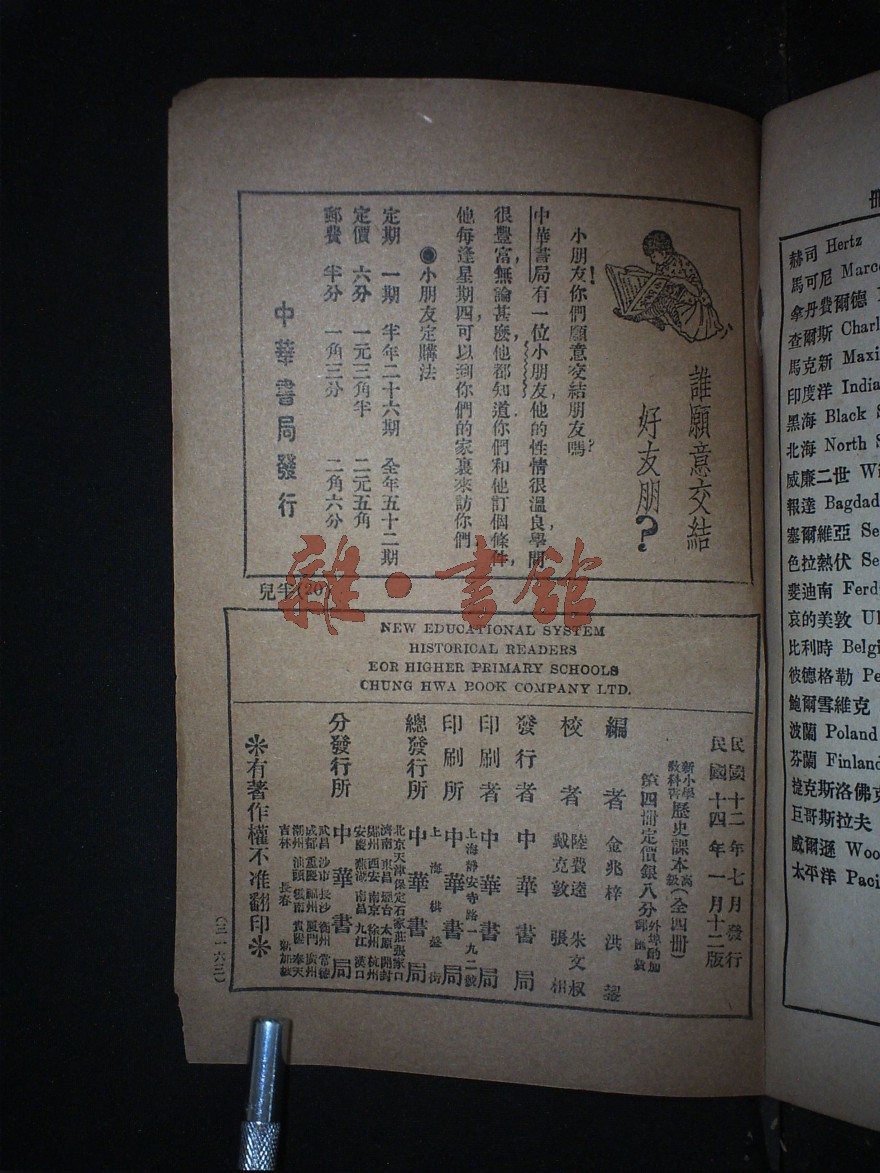 誰願意交結
好友朋?
小朋友!你們願意交結朋友嗎?
中華書局有一位小朋友,他的性情很溫良,學問
很豐富,無論甚麼他都知道.你們和他訂個條件,
他每逢星期四,可以到你們的家裏來訪你們.
◉小朋友定購法
定期 一期 半年二十六期 全年五十二期
定價 六分 一元三角半 二元五角
郵費 半分 一角三分 二角六分
中華書局發行
兒牟(20)
雜·書館
NEW EDUCATIONAL SYSTEM
HISTORICAL READERS
EOR HIGHER PRIMARY SCHOOLS
CHUNG HWA BOOK COMPANY LTD.
民國十二年七月發行
民國十四年一月十二版
新小學教科書歷史課本高級(全四冊)
第四冊定價銀八分
外埠酌加郵匯費
編者 金兆梓 洪鋆
校者 陸費逵 朱文叔
戴克敦 張相
發行者 中華書局
印刷者 中華書局
上海靜安寺路一九二號
印刷所 中華書局
上海棋盤街
總發行所 中華書局
北京天津保定石家莊張家口
濟南東昌煙台太原開封
鄭州西安南京徐州杭州
安慶蕪湖南昌九江漢口
分發行所 中華書局
武昌沙市長沙衡州常德
成都重慶福州廈門廣州
潮州汕頭雲南貴陽奉天
吉林長春新加坡
※有著作權不准翻印※
(三一六三)
冊
赫司 Hertz
馬可尼 Marco
拿丹費爾德
查爾斯 Charl
馬克新 Maxi
印度洋 India
黑海 Black S
北海 North S
威廉二世 Wi
報達 Bagdad
塞爾維亞 Se
色拉熱伏 Se
斐迪南 Ferd
哀的美敦 Ul
比利時 Belgi
彼德格勒 Pe
鮑爾雪維克
波蘭 Poland
芬蘭 Finland
捷克斯洛佛克
巨哥斯拉夫
威爾遜 Woo
太平洋 Paci